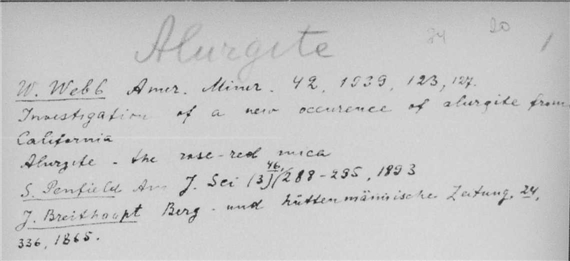 Alurgite
84 20 1
W. Webb Amer. Miner. 42, 1939, 123, 127.
Investigation of a new occurence of alurgite from
California
Alurgite - the rose-red mica
S. Penfield Am J. Sci (3) 46, (288-295, 1893
J. Breithaupt Berg- und hüttenmännische Zeitung, 24,
336, 1865.